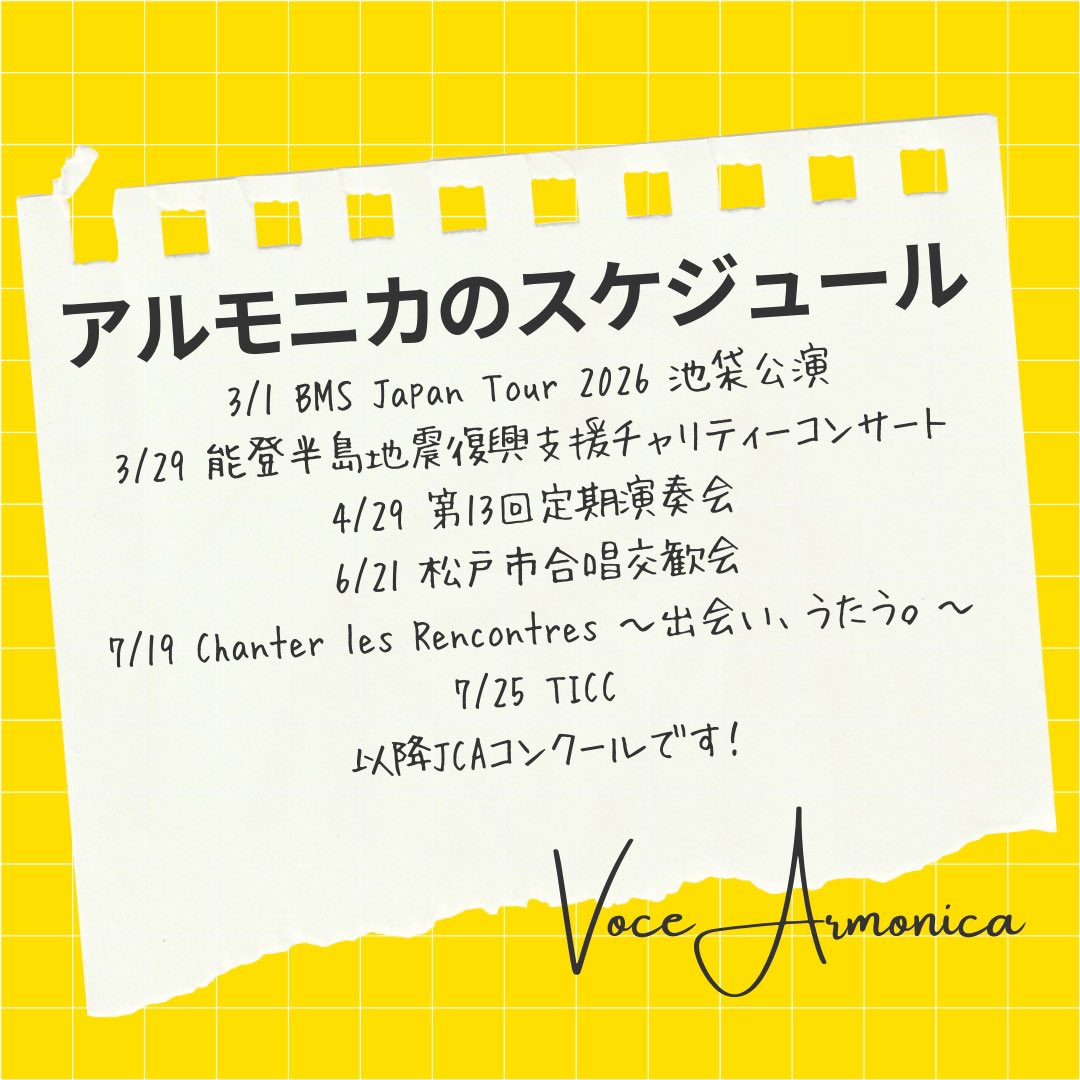 アルモニカのスケジュール
3/1 BMS Japan Tour 2026 池袋公演
3/29 能登半島地震復興支援チャリティーコンサート
4/29 第13回定期演奏会
6/21 松戸市合唱交歓会
7/19 Chanter les Rencontres ～出会い、うたう。～
7/25 TICC
以降JCAコンクールです!
Voce Armonica